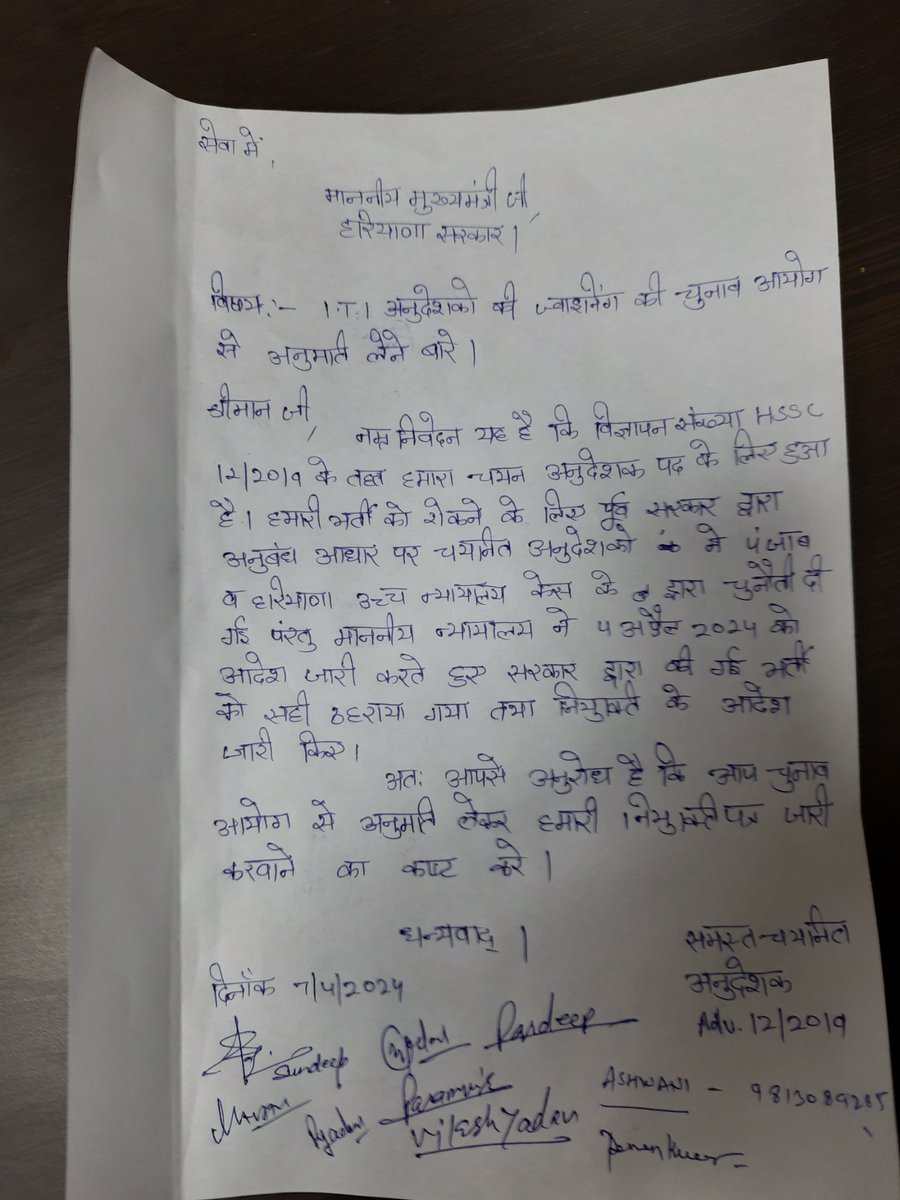 सेवा में,
माननीय मुख्यमंत्री जी,
हरियाणा सरकार।
विषय:- I.T.I अनुदेशको की ज्वाशनिंग की चुनाव आयोग
से अनुमति लेने बारे।
श्रीमान जी,
नम्र निवेदन यह है कि विज्ञापन संख्या HSSC
12/2019 के तहत हमारा चयन अनुदेशक पद के लिए हुआ
है। हमारी भर्ती को रोकने के लिए पूर्व सरकार द्वारा
अनुबंध आधार पर चयनित अनुदेशको ने पंजाब
व हरियाणा उच्च न्यायालय केस के द्वारा चुनौती दी
गई परंतु माननीय न्यायालय ने 4 अप्रैल 2024 को
आदेश जारी करते हुए सरकार द्वारा की गई भर्ती
को सही ठहराया गया तथा नियुक्ति के आदेश
जारी किए।
अत: आपसे अनुरोध है कि आप चुनाव
आयोग से अनुमति लेकर हमारी नियुक्ति पत्र जारी
करवाने का कष्ट करे।
धन्यवाद्।
समस्त चयनित
दिनाँक 7/4/2024
अनुदेशक
Adv. 12/2019
Sundeep Pardeep
ASHWANI - 9813089285
Vijesh Yadav